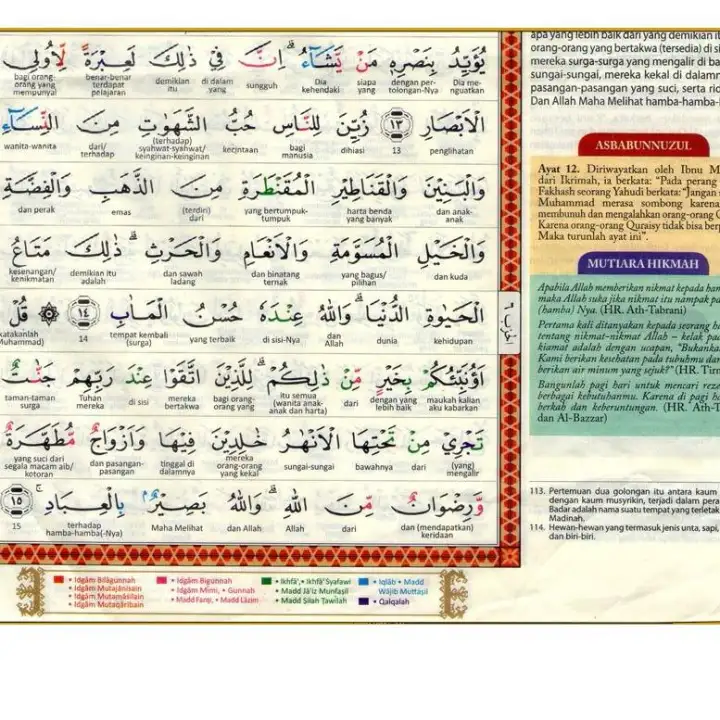 يُؤَيِّدُ بِنَصْرِهٖ مَنْ يَّشَاۤءُ ۗ اِنَّ فِيْ ذٰلِكَ لَعِبْرَةً لِّاُولِى
Dia me-nguatkan
dengan per-tolongan-Nya
siapa yang
Dia kehendaki
sungguh
di dalam yang
demikian itu
benar-benar terdapat pelajaran
bagi orang-orang yang mempunyai
الْاَبْصَارِ ١٣ زُيِّنَ لِلنَّاسِ حُبُّ الشَّهَوٰتِ مِنَ النِّسَاۤءِ
penglihatan
13
dihiasi
bagi manusia
kecintaan
(terhadap) syahwat-syahwat/ keinginan-keinginan
dari/ terhadap
wanita-wanita
وَالْبَنِيْنَ وَالْقَنَاطِيْرِ الْمُقَنْطَرَةِ مِنَ الذَّهَبِ وَالْفِضَّةِ
dan anak-anak
harta benda yang banyak
yang bertumpuk-tumpuk
(terdiri) dari
emas
dan perak
وَالْخَيْلِ الْمُسَوَّمَةِ وَالْاَنْعَامِ وَالْحَرْثِ ۗ ذٰلِكَ مَتَاعُ
dan kuda
yang bagus/ pilihan
dan binatang ternak
dan sawah ladang
demikian itu adalah
kesenangan/ kenikmatan
الْحَيٰوةِ الدُّنْيَا ۗ وَاللّٰهُ عِنْدَهٗ حُسْنُ الْمَاٰبِ ١٤ ۞ قُلْ
kehidupan
dunia
dan Allah
di sisi-Nya
yang terbaik
tempat kembali (surga)
14
katakanlah Muhammad)
اَؤُنَبِّئُكُمْ بِخَيْرٍ مِّنْ ذٰلِكُمْ ۗ لِلَّذِيْنَ اتَّقَوْا عِنْدَ رَبِّهِمْ جَنّٰتٌ
maukah kalian aku kabarkan
dengan yang lebih baik
dari
itu semua (wanita anak-anak dan harta)
bagi orang-orang yang
mereka bertakwa
di sisi
Tuhan mereka
taman-taman surga
تَجْرِيْ مِنْ تَحْتِهَا الْاَنْهٰرُ خٰلِدِيْنَ فِيْهَا وَاَزْوَاجٌ مُّطَهَّرَةٌ
(yang) mengalir
dari
bawahnya
sungai-sungai
mereka orang-orang yang kekal
tinggal di dalamnya
dan pasangan-pasangan
yang suci dari segala macam aib/ kotoran
وَّرِضْوَانٌ مِّنَ اللّٰهِ ۗ وَاللّٰهُ بَصِيْرٌۢ بِالْعِبَادِ ۚ ١٥
dan (mendapatkan) keridaan
dari
Allah
dan Allah
Maha Melihat
terhadap hamba-hamba(-Nya)
15
apa yang lebih baik dari yang demikian it
orang-orang yang bertakwa (tersedia) di si
mereka surga-surga yang mengalir di ba
sungai-sungai, mereka kekal di dalamn
pasangan-pasangan yang suci, serta rid
Dan Allah Maha Melihat hamba-hamba-
ASBABUNNUZUL
Ayat 12. Diriwayatkan oleh Ibnu M
dari Ikrimah, ia berkata: "Pada perang
Fakhash seorang Yahudi berkata: "Jangan s
Muhammad merasa sombong karena
membunuh dan mengalahkan orang-orang Q
Karena orang-orang Quraisy tidak bisa berp
Maka turunlah ayat ini".
MUTIARA HIKMAH
Apabila Allah memberikan nikmat kepada ham
maka Allah suka jika nikmat itu nampak pa
(hamba) Nya. (HR. Ath-Tabrani)
Pertama kali ditanyakan kepada seorang h
tentang nikmat-nikmat Allah – kelak pad
kiamat adalah dengan ucapan, "Bukanka
Kami berikan kesehatan pada tubuhmu dan
berikan air minum yang sejuk?" (HR. Tirm
Bangunlah pagi hari untuk mencari reze
berbagai kebutuhanmu. Karena di pagi h
berkah dan keberuntungan. (HR. Ath-T
dan Al-Bazzar)
113. Pertemuan dua golongan itu antara kaum
dengan kaum musyrikin, terjadi dalam pera
Badar adalah nama suatu tempat yang terletak
Madinah.
114. Hewan-hewan yang termasuk jenis unta, sapi,
dan biri-biri.
• Idgām Bilāgunnah
• Idgām Mutajānisain
• Idgām Mutamāśilain
• Idgām Mutaqāribain
• Idgām Bigunnah
• Idgām Mimi, • Gunnah
• Madd Farqi, • Madd Lāzim
• Ikhfā', • Ikhfā' Syafawi
• Madd Jā'iz Munfaşil
• Madd Şilah Ţawilah
• Iqlāb • Madd
Wājib Muttaşil
• Qalqalah